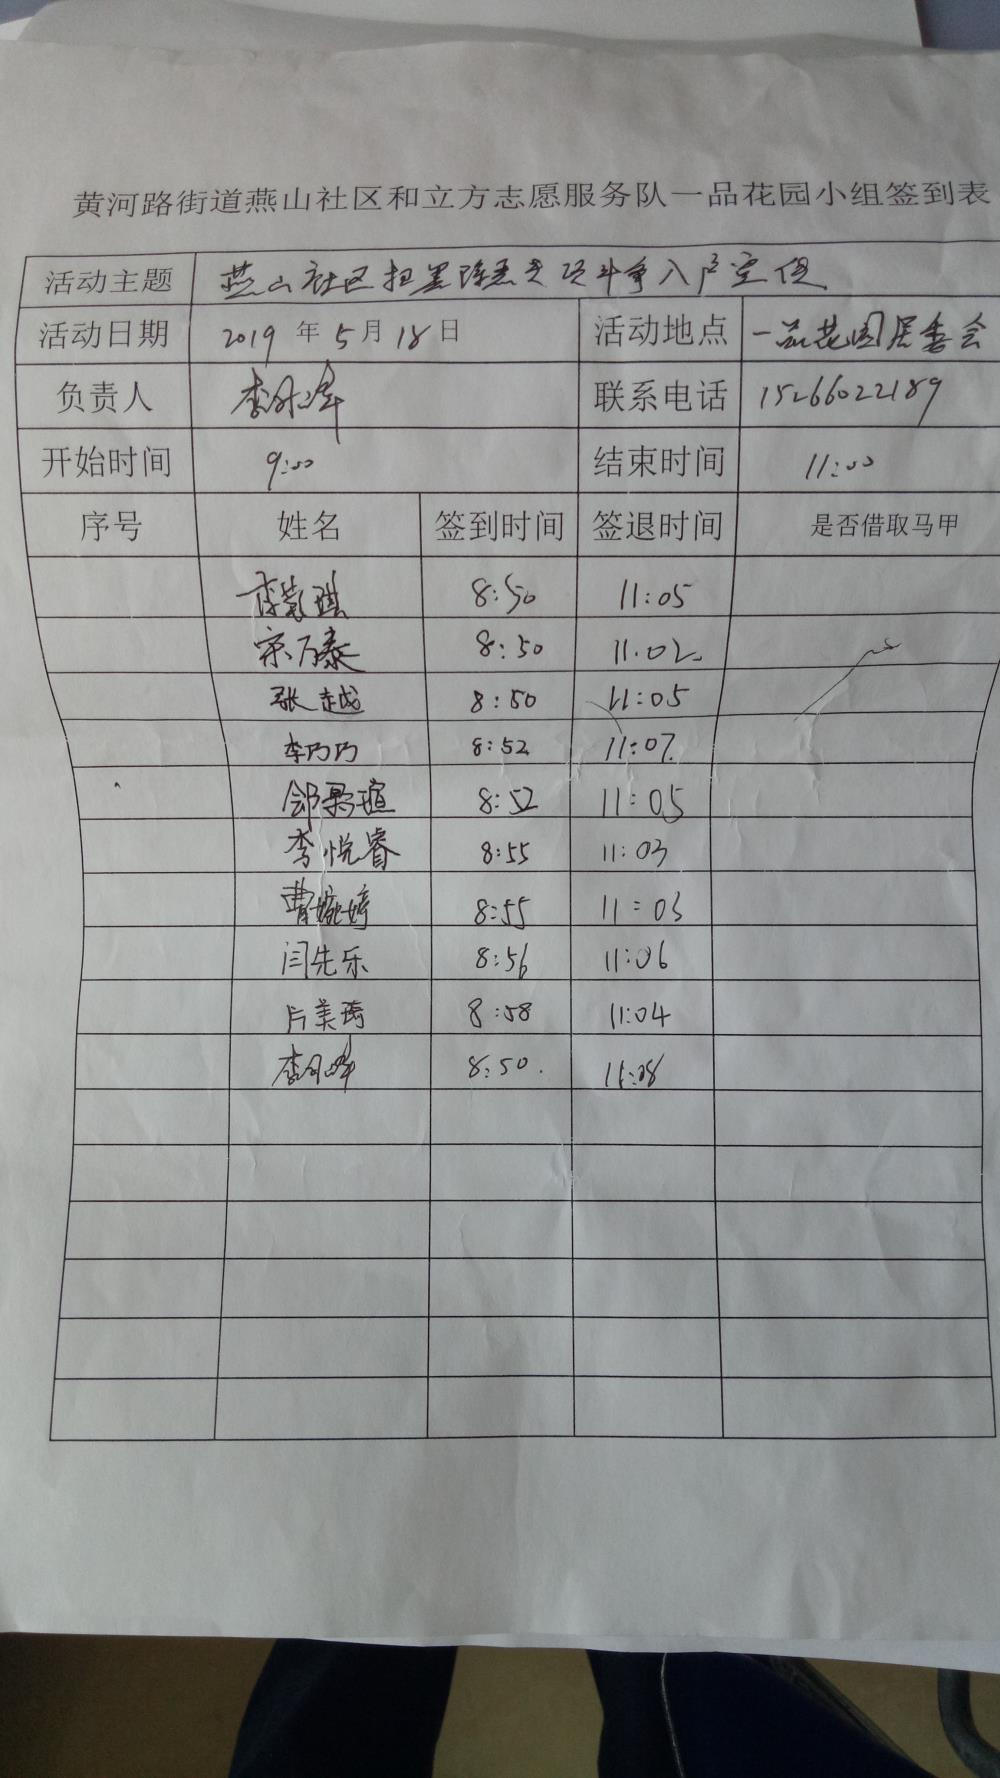 黄河路街道燕山社区和立方志愿服务队一品花园小组签到表
活动主题 燕山社区扫黑除恶专项斗争入户宣传
活动日期 2019年5月18日 活动地点 一品花园居委会
负责人 李月峰 联系电话 15266022189
开始时间 9:00 结束时间 11:00
序号 姓名 签到时间 签退时间 是否借取马甲
8:50 11:05
宋万泰 8:50 11:02
张越 8:50 11:05
李巧巧 8:52 11:07
8:52 11:05
李悦睿 8:55 11:03
曹婉婷 8:55 11:03
闫先乐 8:56 11:06
片美琦 8:58 11:04
李月峰 8:50 11:08